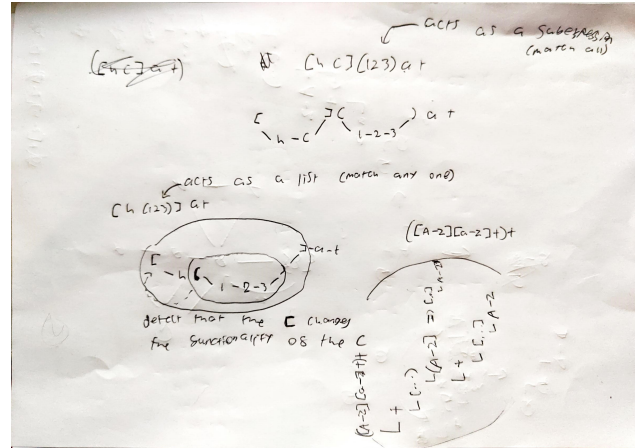 acts as a subexpression
(match all)
([hc]at)
[hc](123)at
[ ]( ) at
h-c 1-2-3
acts as a list (match any one)
[h(123)]at
([A-Z][a-z]+)+
[ ]-a-t
h ( 1-2-3
detect that the [ changes
the functionality of the (
([A-Z][a-z]+)+
L +
L(..)
L[A-Z] => [..]
L A-Z
L +
L[..]
L A-Z